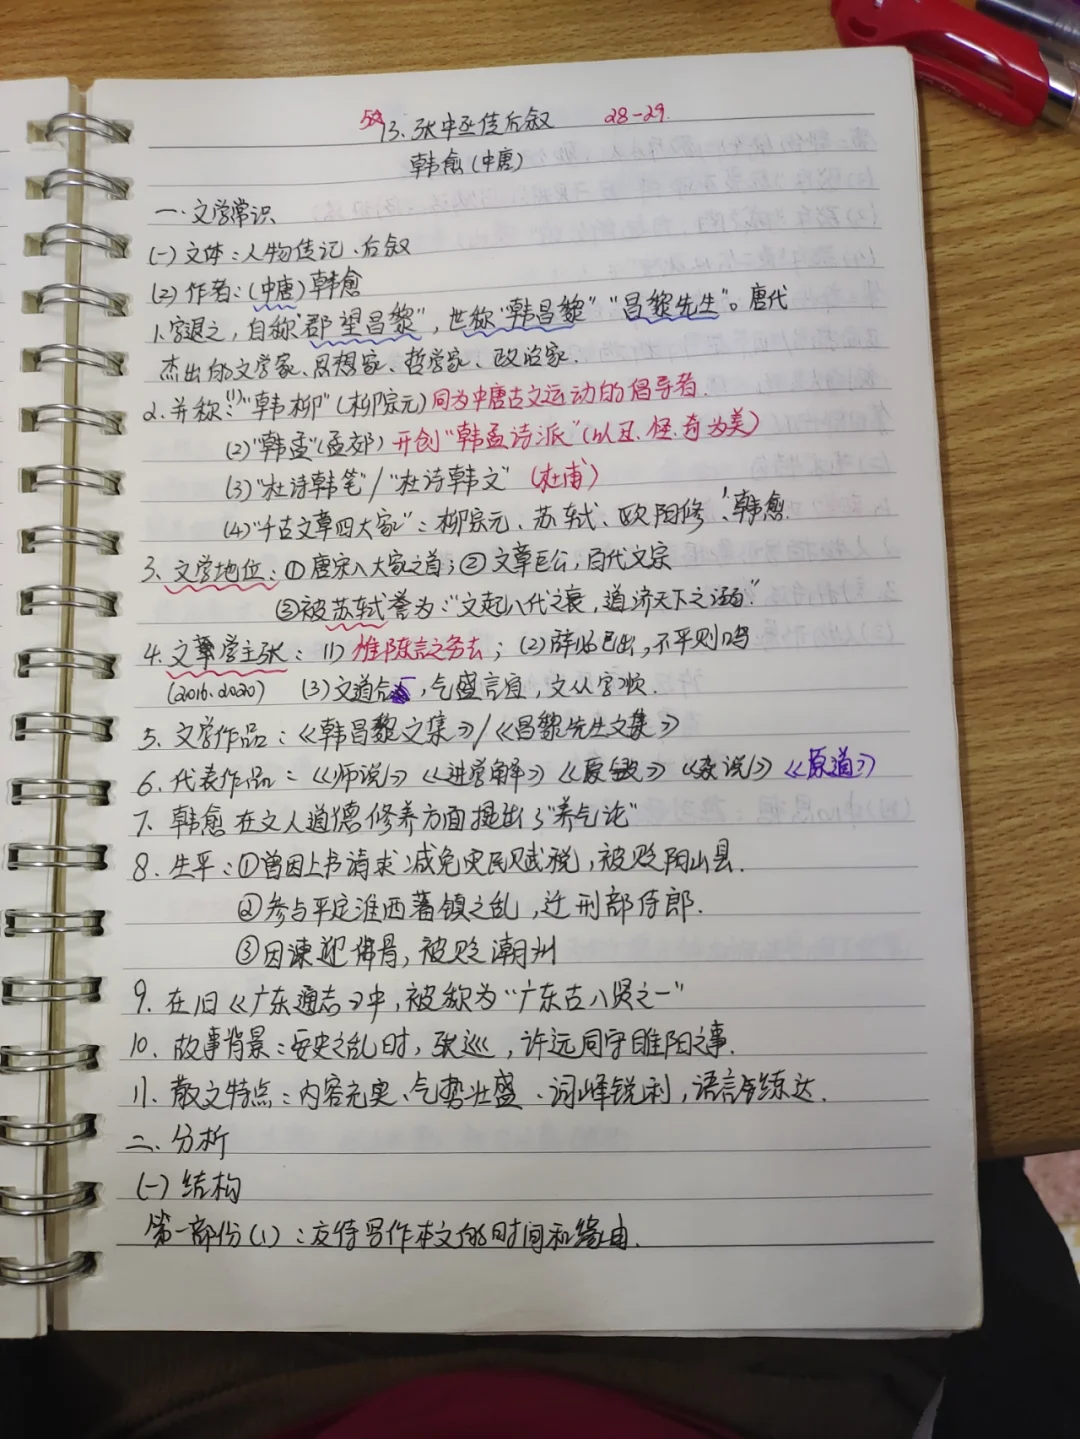 13、张中丞传后叙 28-29
韩愈(中唐)
一·文学常识
(一)文体：人物传记、后叙
(2)作者：(中唐)韩愈
1.字退之，自称"郡望昌黎"，世称"韩昌黎""昌黎先生"。唐代
杰出的文学家、思想家、哲学家、政治家.
2.并称：(1)"韩柳"(柳宗元)同为中唐古文运动的倡导者.
(2)"韩孟"(孟郊)开创"韩孟诗派"(以丑、怪、奇为美)
(3)"杜诗韩笔"/"杜诗韩文"(杜甫)
(4)"千古文章四大家"：柳宗元、苏轼、欧阳修、韩愈.
3、文学地位：①唐宋八大家之首；②文章巨公，百代文宗
③被苏轼誉为："文起八代之衰，道济天下之溺."
4.文学主张：(1)惟陈言之务去；(2)辞必己出，不平则鸣
(2016.2020) (3)文道合一，气盛言宜，文从字顺.
5.文学作品：《韩昌黎文集》/《昌黎先生文集》
6.代表作品：《师说》《进学解》《原毁》《杂说》《原道》
7.韩愈在文人道德修养方面提出了"养气论"
8.生平：①曾因上书请求减免灾民赋税，被贬阳山县.
②参与平定淮西藩镇之乱，迁刑部侍郎.
③因谏迎佛骨，被贬潮州
9.在旧《广东通志》中，被称为"广东古八贤之一"
10.故事背景：安史之乱时，张巡，许远同守睢阳之事.
11.散文特点：内容充实、气势壮盛、词峰锐利，语言练达.
二、分析
(一)结构
第一部份(1)：交待写作本文的时间和缘由.